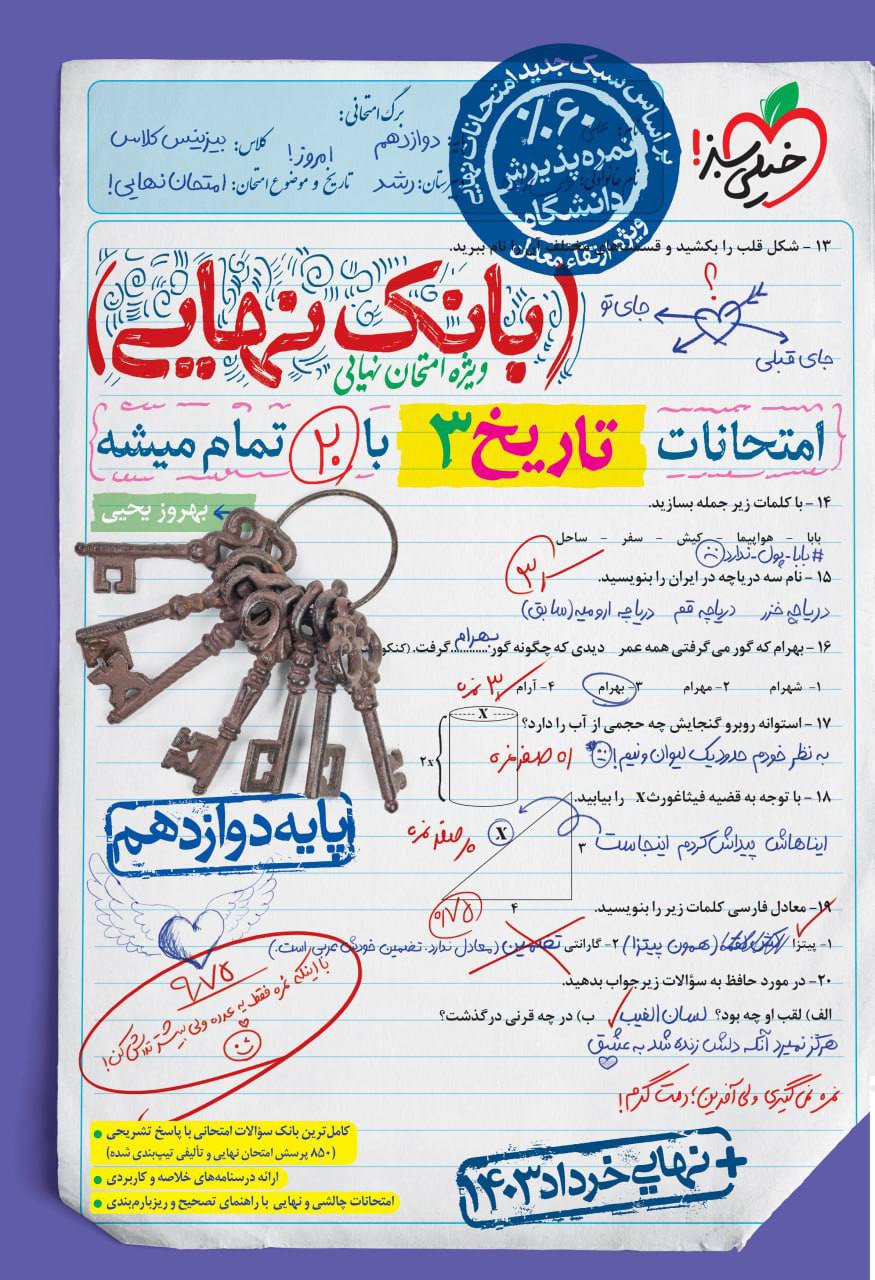 خیلی سبز!
براساس سبک جدید امتحانات نهایی
٪۶۰
نمره پذیرش
دانشگاه
ویژه ارتقاء معدل
برگ امتحانی:
دوازدهم
کلاس: بیزینس کلاس
رشد
تاریخ و موضوع امتحان: امروز! امتحان نهایی!
۱۳ - شکل قلب را بکشید و قسمت‌های مختلف آن را نام ببرید.
؟
جای تو
جای قبلی
(بانک نهایی)
ویژه امتحان نهایی
امتحانات تاریخ ۳ با ۲۰ تمام میشه
بهروز یحیی
۱۴ - با کلمات زیر جمله بسازید.
بابا - هواپیما - کیش - سفر - ساحل
#بابا-پول-ندارد
۱۵ - نام سه دریاچه در ایران را بنویسید.
دریاچه خزر دریاچه قم دریاچه ارومیه (سابق)
۱۶ - بهرام که گور می‌گرفتی همه عمر دیدی که چگونه گور بهرام گرفت.
۱- شهرام ۲- مهرام ۳- بهرام ۴- آرام
۱۷ - استوانه روبرو گنجایش چه حجمی از آب را دارد؟
X
۲x
به نظر خودم حدود یک لیوان و نیم!
صفر نمره
۱۸ - با توجه به قضیه فیثاغورث X را بیابید.
X
۳
۴
ایناهاش پیداش کردم اینجاست
صفر نمره
پایه دوازدهم
۱۹- معادل فارسی کلمات زیر را بنویسید.
۰/۷۵
۱- پیتزا (همون پیتزا) ۲- گارانتی تضمین (معادل ندارد. تضمین خودش عربی است.)
۲۰- در مورد حافظ به سؤالات زیر جواب بدهید.
الف) لقب او چه بود؟ لسان الغیب ب) در چه قرنی درگذشت؟
هرگز نمیرد آنکه دلش زنده شد به عشق
نمره نمی‌گیری ولی آفرین؛ دمت گرم!
۹/۷۵
با اینکه نمره فقط یه عدده ولی بیشتر تلاش کن!
کامل‌ترین بانک سؤالات امتحانی با پاسخ تشریحی
(۸۵۰ پرسش امتحان نهایی و تألیفی تیپ‌بندی شده)
ارائه درسنامه‌های خلاصه و کاربردی
امتحانات چالشی و نهایی با راهنمای تصحیح و ریزبارم‌بندی
+ نهایی خرداد ۱۴۰۳